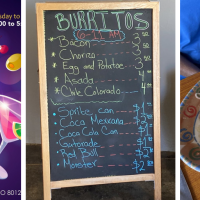 sday to
:00 to 5
IO 8012
BURRITOS
(6-11 AM)
* Bacon 3.50
* Chorizo 3.50
* Egg and Potatoe 3.50
* Asada 4.00
* Chile Colorado 4.00
• Sprite can $1
• Coca Mexicana $3
• Coca Cola Can $1
• Gatorade $2
• Red Bull $3
• Monster $3